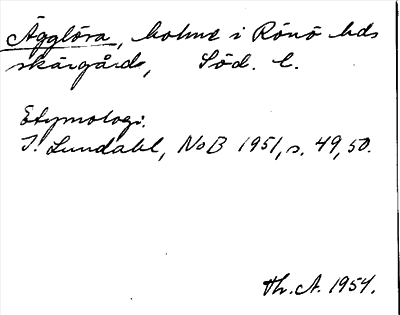 Ägglöra, holme i Rönö hds
skärgård, Söd. l.
Etymologi.
I. Lundahl, NoB 1951, s. 49, 50.
Th. A. 1954.